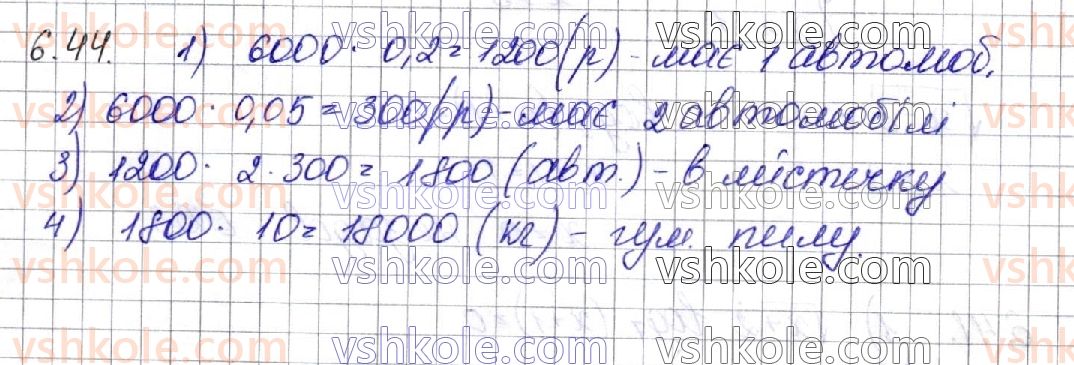 vshkole.com vshkole.com vshkole.com
6.44. 1) 6000 · 0,2 = 1200 (р) - має 1 автомоб.
vshkole.com vshkole.com vshkole.com
2) 6000 · 0,05 = 300 (р) - має 2 автомобілі
vshkole.com vshkole.com vshkole.com
3) 1200 · 2 · 300 = 1800 (авт.) - в містечку
vshkole.com vshkole.com vshkole.com
4) 1800 · 10 = 18000 (кг) - гум. пилу.
vshkole.com vshkole.com vshkole.com
vshkole.com vshkole.com vshkole.com